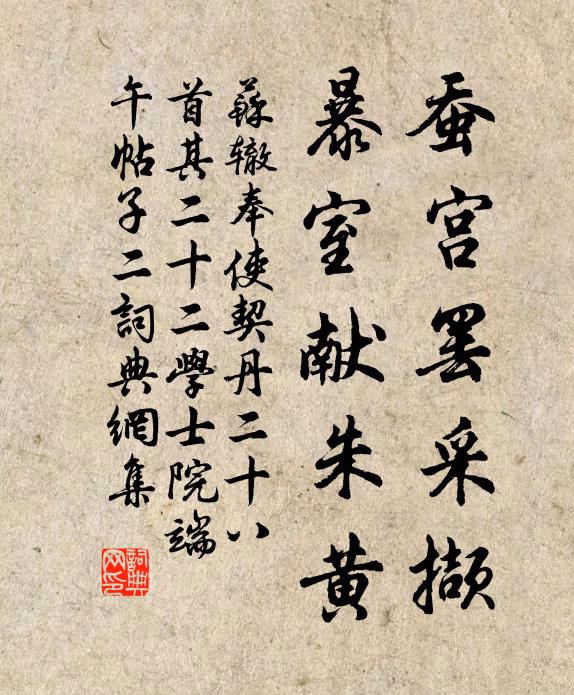 蚕宫罢采撷
暴室献朱黄
蘇辙奉使契丹二十八
首其二十二學士院端
午帖子二詞典網集
詞典网印